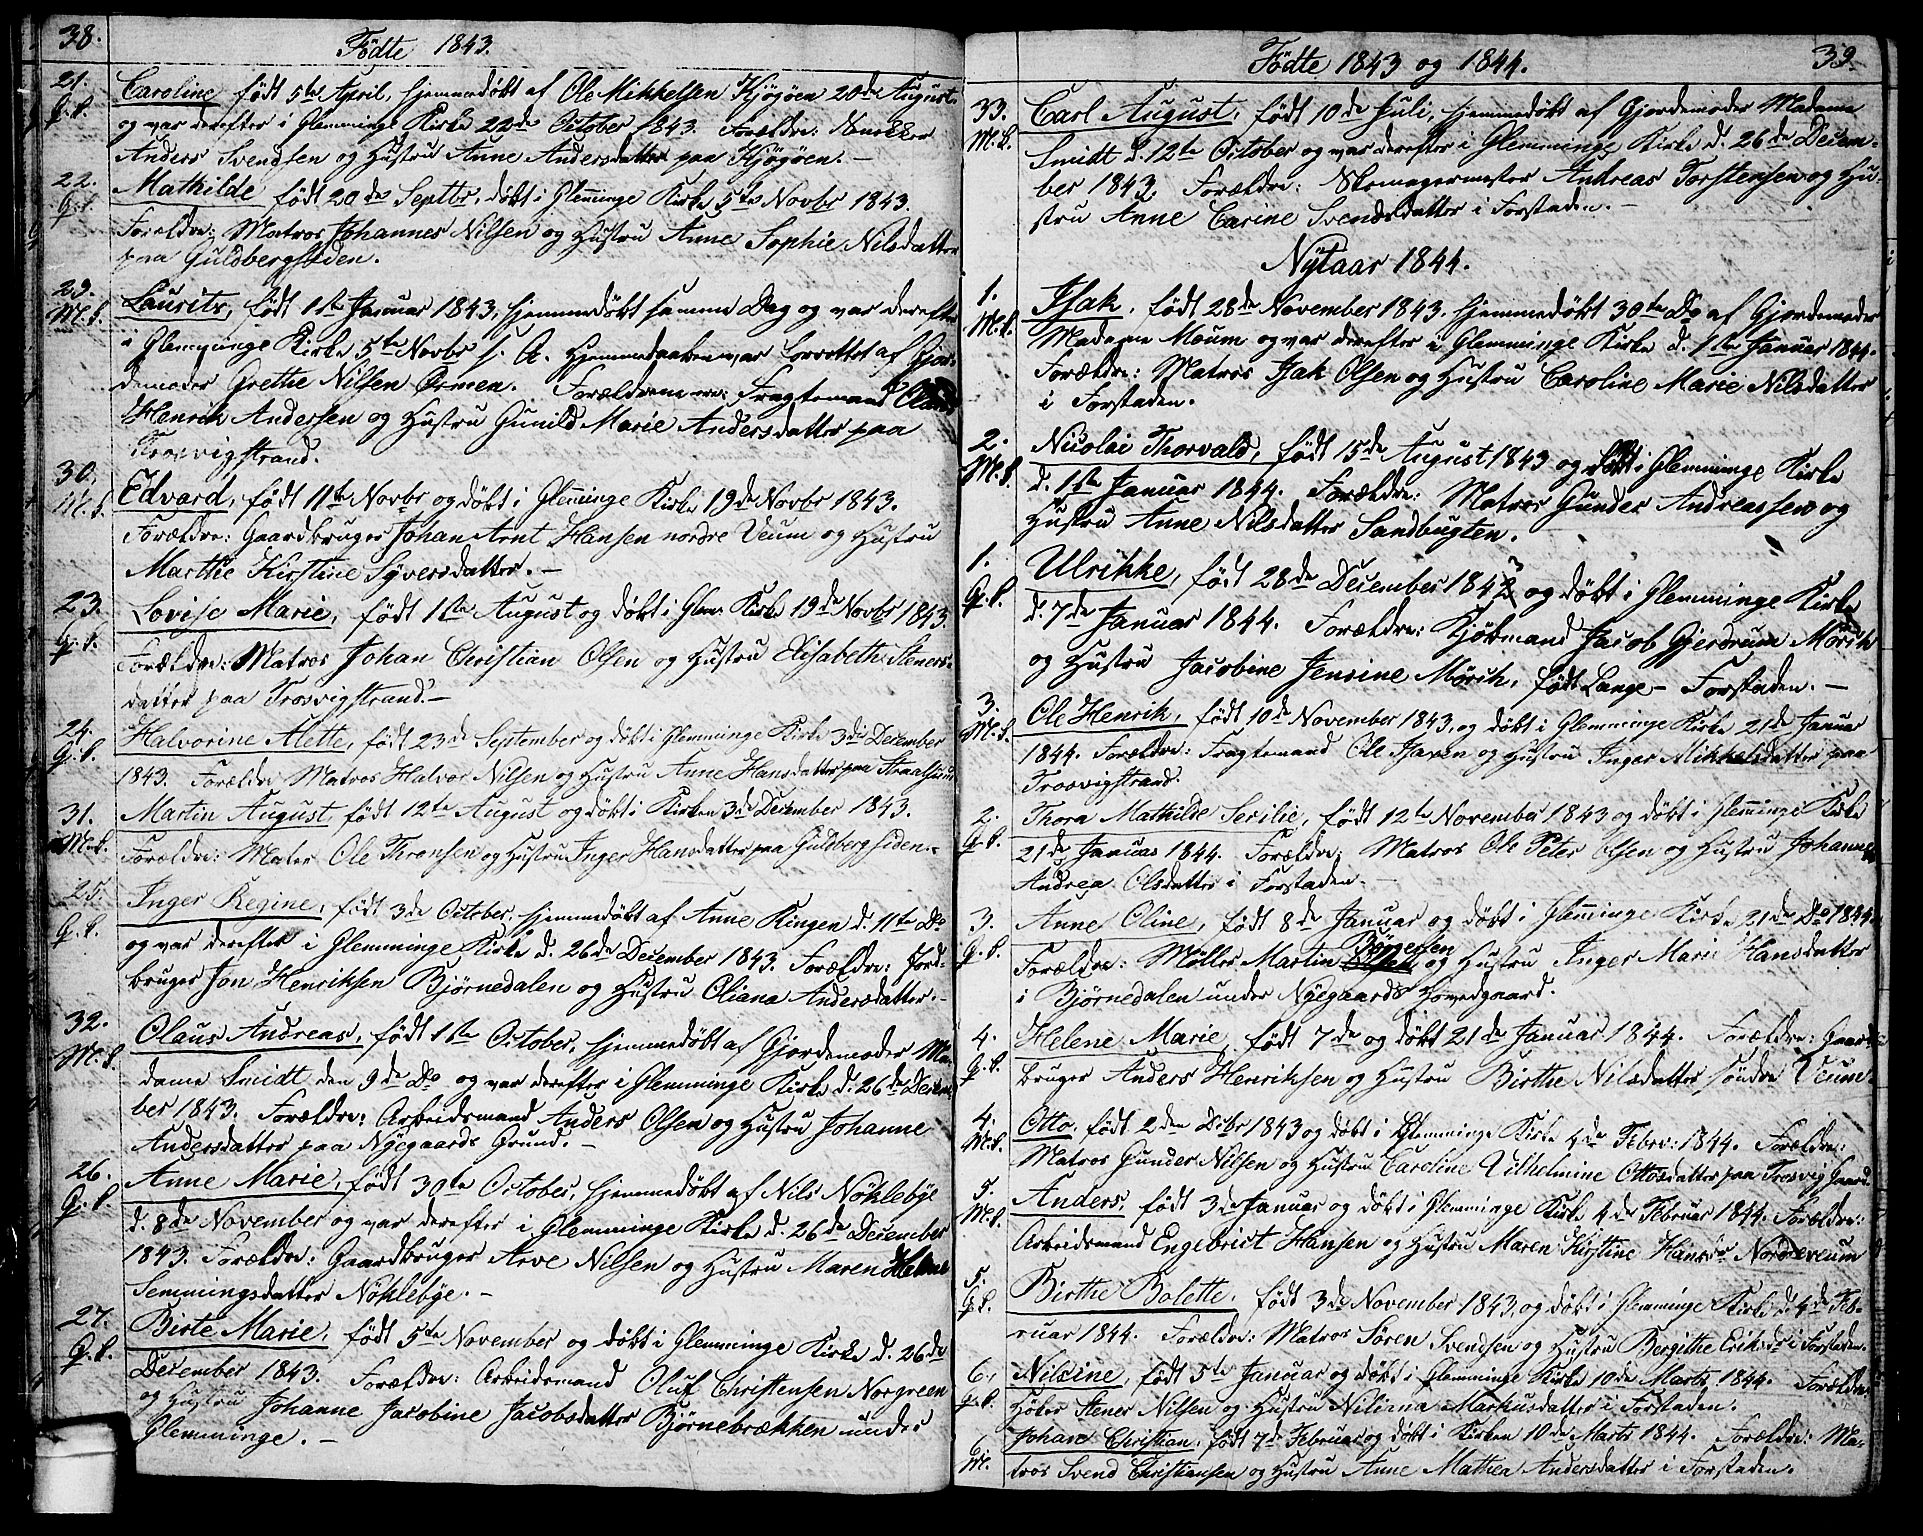 38.
Fødte 1843.
21. Caroline født 5te April, hjemmedøbt af Ole Mikkelsen Kjøgøen 20de August
Q.k. og var derefter i Glemminge Kirke 22de October 1843. Forældre:
Anders Svendsen og Hustru Anne Andersdatter paa Kjøgøen.
22. Mathilde født 20de Septbr, døbt i Glemminge Kirke 5te Novbr 1843.
Q.k. Forældre: Matros Johannes Nilsen og Hustru Anne Sophie Nilsdatter
paa Guldbergsiden.
29. Laurits, født 1ste Januar 1843, hjemmedøbt samme Dag og var derefter
M.k. i Glemminge Kirke 5te Novbr s. A. Hjemmedaaben var forrettet af Gjor-
demoder Grethe Nilsen Ørmen. Forældrene ere: Fragtemand
Henrik Andersen og Hustru Gunild Marie Andersdatter paa
Trosvigstrand.
30. Edvard, født 11te Novbr og døbt i Glemminge Kirke 19de Novbr 1843.
M.k. Forældre: Gaardbruger Johan Arnt Hansen nordre Veum og Hustru
Marthe Kirstine Syversdatter.
23. Lovise Marie, født 1ste August og døbt i Glem. Kirke 19de Novbr 1843.
Q.k. Forældre: Matros Johan Christian Olsen og Hustru Elisabeth Steners-
datter paa Trosvigstrand.
24. Halvorine Alette, født 23de September og døbt i Glemminge Kirke 3die December
Q.k. 1843. Forældre Matros Halvor Nilsen og Hustru Anne Hansdatter paa
31. Martin August, født 12te August og døbt i Kirken 3die December 1843.
M.k. Forældre: Matros Ole Thronsen og Hustru Inger Hansdatter paa Guldbergsiden.
25. Inger Regine, født 3de October, hjemmedøbt af Anne Ringen d. 11te Do
Q.k. og var derefter i Glemminge Kirke d. 26de December 1843. Forældre: Jord-
bruger Jon Henriksen Bjørnedalen og Hustru Oliana Andersdatter.
32. Olaus Andreas, født 1ste October, hjemmedøbt af Gjordemoder Ma-
M.k. dame Smidt den 9de Do og var derefter i Glemminge Kirke d. 26de Decem
ber 1843. Forældre: Arbeidsmand Anders Olsen og Hustru Johanne
Andersdatter paa Nyegaards Grund.
26. Anne Marie, født 30te October, hjemmedøbt af Nils Nøklebye
Q.k. d. 8de November og var derefter i Glemminge Kirke d. 26de December
1843. Forældre: Gaardbruger Arve Nilsen og Hustru Maren Helene
Semmingsdatter Nøklebye.
27. Birte Marie, født 5te November og døbt i Glemminge Kirke d. 26de
Q.k. December 1843. Forældre: Arbeidsmand Oluf Christensen Norgreen
og Hustru Johanne Jacobine Jacobsdatter Bjørnebrækken under
Glemminge.
39.
Fødte 1843 og 1844.
33. Carl August, født 10de Juli, hjemmedøbt af Gjordemoder Madame
M.k. Smidt d. 12te October og var derefter i Glemminge Kirke d. 26de Decem-
ber 1843. Forældre: Skomagermester Andreas Torstensen og Hu-
stru Anne Carine Svendsdatter i Forstaden.
Nytaar 1844.
1. Isak, født 28de November 1843, hjemmedøbt 30te Do af Gjordemoder
M.k. Madame Moum og var derefter i Glemminge Kirke d. 1ste Januar 1844.
Forældre: Matros Isak Olsen og Hustru Caroline Marie Nilsdatter
i Forstaden.
2. Nicolai Thorvald, født 15de August 1843 og døbt i Glemminge Kirke
M.k. d. 1ste Januar 1844. Forældre: Matros Gunder Andreassen og
Hustru Anne Nilsdatter Sandbugten.
1. Ulrikke, født 28de December 1843 og døbt i Glemminge Kirke
Q.k. d. 7de Januar 1844. Forældre: Kjøbmand Jacob Gjerdrum Mørch
og Hustru Jacobine Jensine Mørch, født Lange - Forstaden.
3. Ole Henrik, født 10de November 1843, og døbt i Glemminge Kirke 21de Januar
M.k. 1844. Forældre: Fragtemand Ole Isaxen og Hustru Inger Mikkelsdatter paa
Trosvigstrand.
2. Thora Mathilde Sesilie, født 12te November 1843 og døbt i Glemminge Kirke
Q.k. 21de Januar 1844. Forældre: Matros Ole Peter Olsen og Hustru Johanne
Andrea Olsdatter i Forstaden.
3. Anne Oline, født 8de Januar og døbt i Glemminge Kirke 21de Do 1844.
Q.k. Forældre: Møller Martin Børgessen og Hustru Inger Marie Hansdatter
i Bjørnedalen under Nyegaards Hovedgaard.
4. Helene Marie, født 7de og døbt 21de Januar 1844. Forældre: Gaard-
Q.k. bruger Anders Henriksen og Hustru Birthe Nilsdatter søndre Veum.
4. Otto, født 2den Decbr 1843 og døbt i Glemminge Kirke 4de Febr: 1844. Forældre:
M.k. Matros Gunder Nilsen og Hustru Caroline Vilhelmine Ottosdatter paa Trosvig Gaard.
5. Anders, født 3de Januar og døbt i Glemminge Kirke 4de Februar 1844. Forældre:
M.k. Arbeidsmand Engebrict Hansen og Hustru Maren Kirstine Hansdr Nordreveum
5. Birthe Bolette, født 3de November 1843, og døbt i Glemminge Kirke d. 4de Feb-
Q.k. ruar 1844. Forældre: Matros Søren Svendsen og Hustru Bergithe Eriksdr i Forstaden.
6. Nilsine, født 5te Januar og døbt i Glemminge Kirke 10de Marts 1844. Forældre:
Q.k. Høker Stener Nilsen og Hustru Niliana Markusdatter i Forstaden.
6. Johan Christian, født 7de Februar og døbt i Kirken 10de Marts 1844. Forældre: Ma-
M. tros Svend Christiansen og Hustru Anne Mathea Andersdatter i Forstaden.